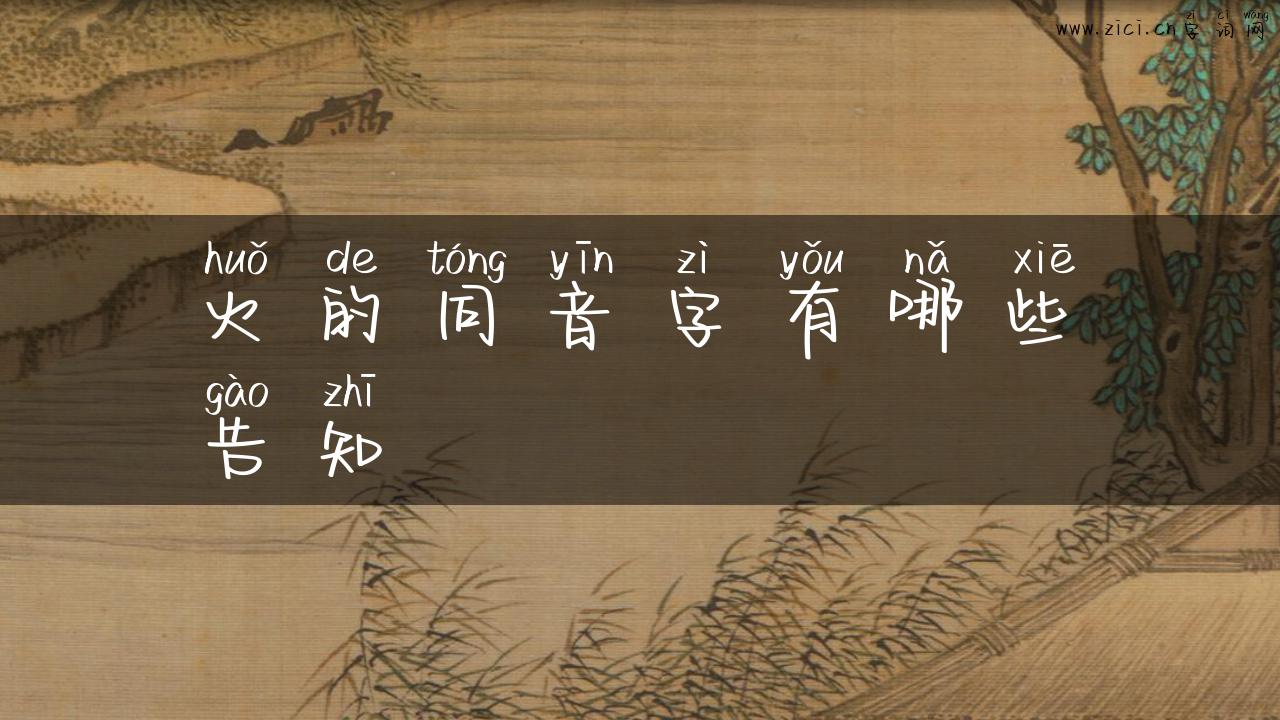 zì cí wǎng
www.zici.cn字词网
huǒ de tóng yīn zì yǒu nǎ xiē
火的同音字有哪些
gào zhī
告知